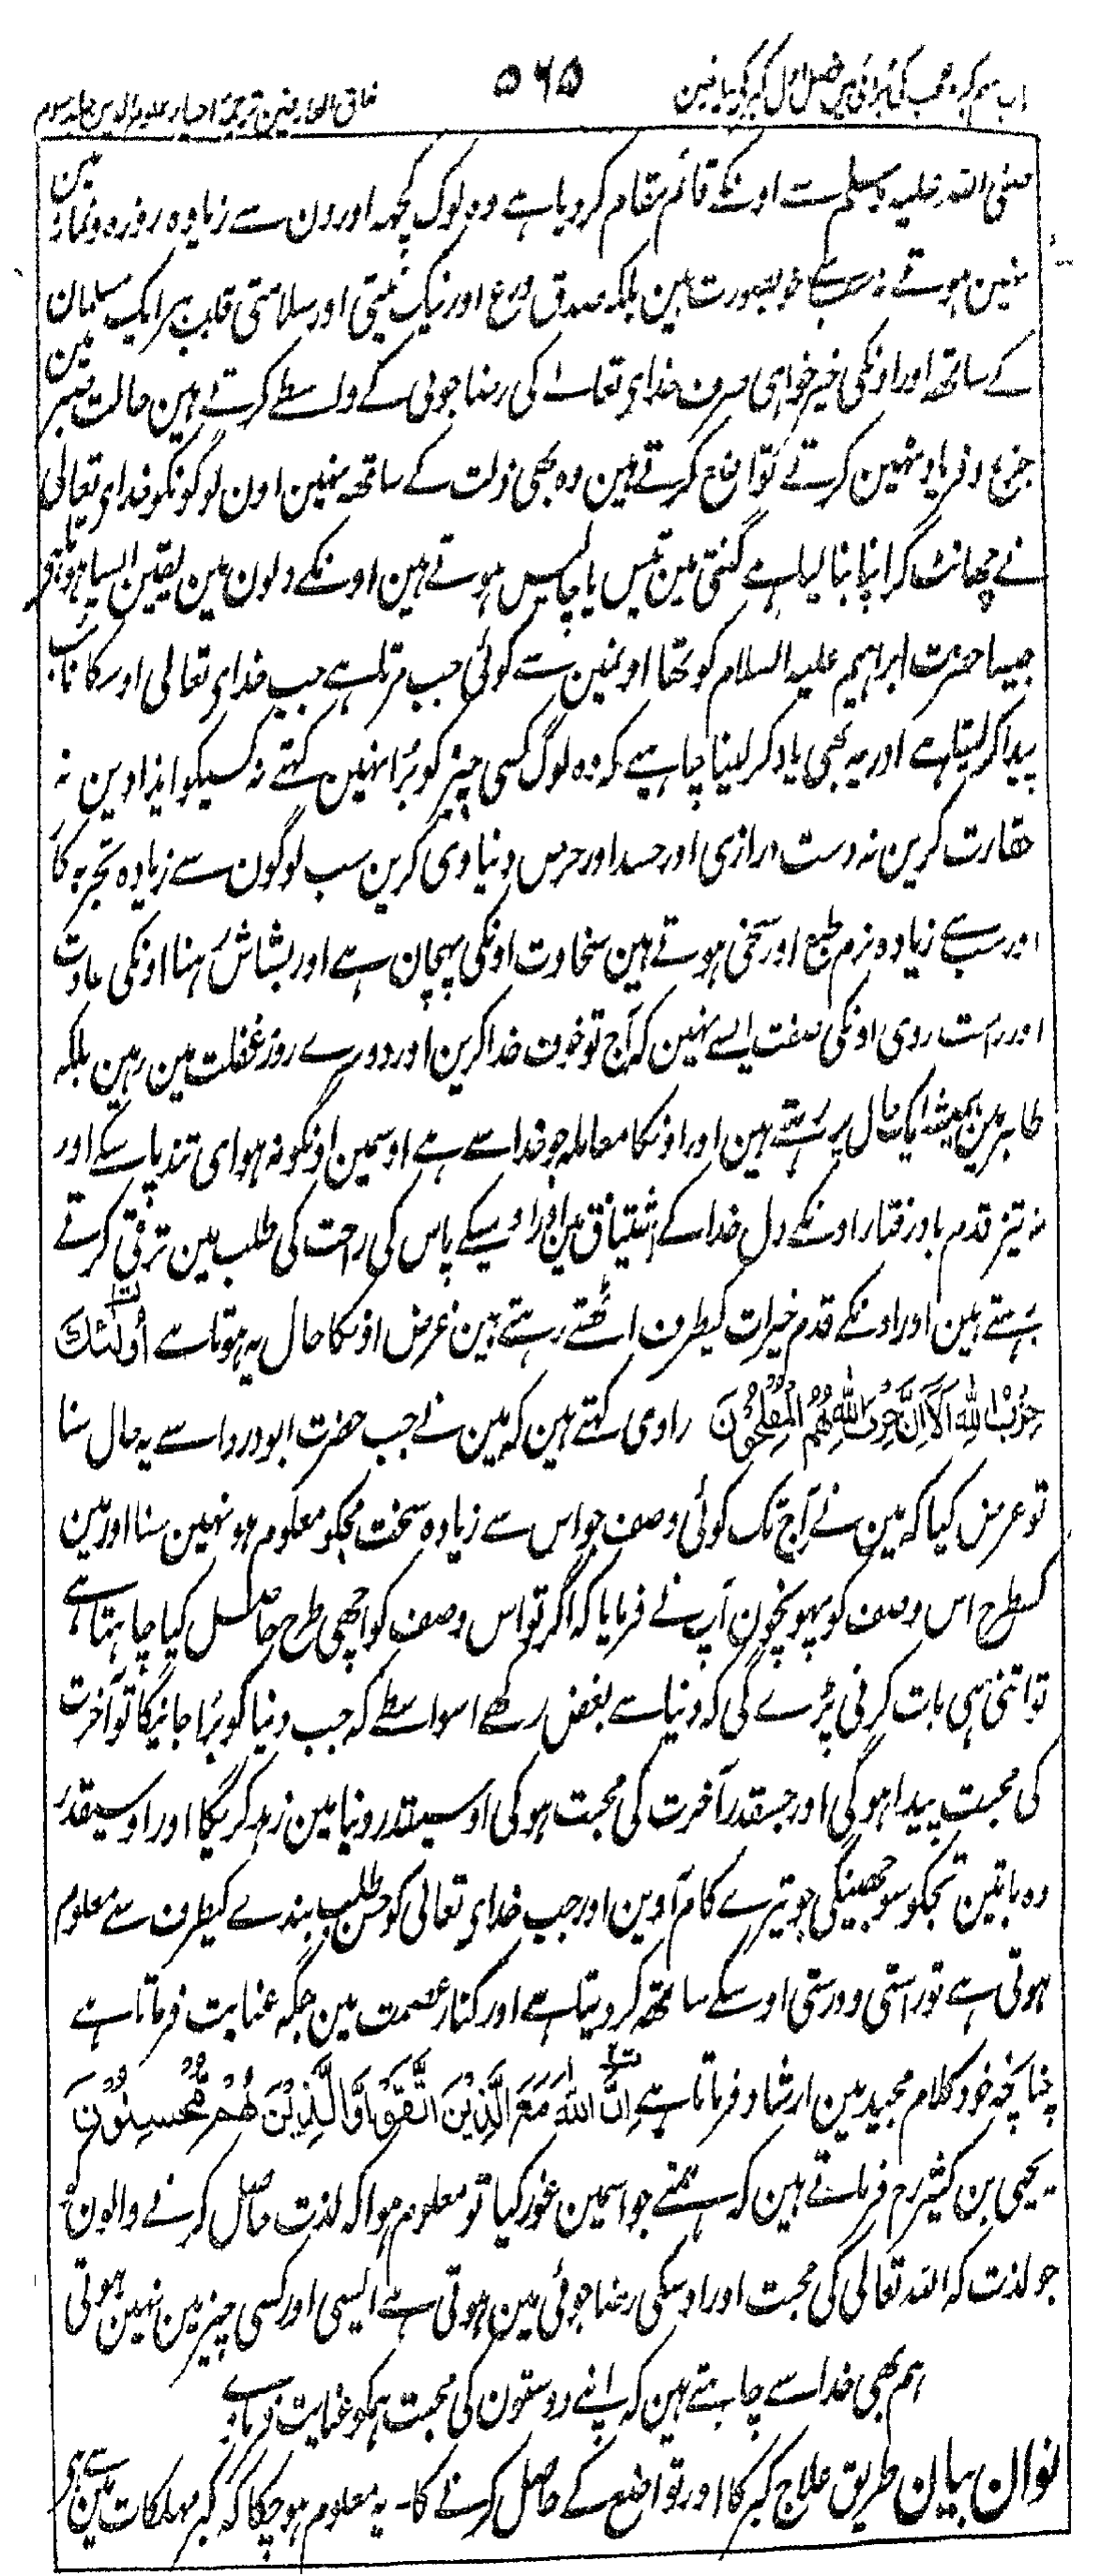 باب سوم کبر و عجب کی برائی میں فصل اول کبر کے بیان میں ۵۶۵ مذاق العارفین ترجمہ احیاء علوم الدین جلد سوم
صلی اللہ علیہ وسلم سے اونکے قائم مقام کر دیا ہے وہ لوگ کچھ اورون سے زیادہ روزہ و نماز مین
نہین ہوتے نہ سب سے خوبصورت ہین بلکہ صدق ورع اور نیک نیتی اور سلامتی قلب ہر ایک مسلمان
کے ساتھ اور اونکی خیرخواہی صرف خدای تعالے کی رضا جوئی کے واسطے کرتے ہین حالت صبر مین
جزع و فریاد نہین کرتے تواضع کرتے ہین وہ بھی ذلت کے ساتھ نہین اون لوگونکو خدای تعالی
نے چھانٹ کر اپنا بنا لیا ہے گنتی مین تیس یا چالیس ہوتے ہین اونکے دلون مین یقین ایسا ہوتا ہے
جیسا حضرت ابراہیم علیہ السلام کو تھا اونمین سے کوئی جب مرتا ہے جب خدای تعالی اوسکا نائب
پیدا کر لیتا ہے اور یہ بھی یاد کر لینا چاہیے کہ وہ لوگ کسی چیز کو بُرا نہین کہتے نہ کسیکو ایذا دین نہ
حقارت کرین نہ دست درازی اور حسد اور حرص دنیاوی کرین سب لوگون سے زیادہ تجربہ کار
اور سب سے زیادہ نرم طبع اور سخی ہوتے ہین سخاوت اونکی پہچان ہے اور بشاش رہنا اونکی عادت
اور راست روی اونکی صفت ایسے نہین کہ آج تو خوف خدا کرین اور دوسرے روز غفلت مین رہین بلکہ
ظاہر مین ہمیشہ ایک حال پر رہتے ہین اور اونکا معاملہ جو خدا سے ہے اوسمین اونکو نہ ہوای تند پا سکے اور
نہ تیز قدم باد رفتار اونکے دل خدا کے اشتیاق مین اور اوسیکے پاس کی راحت کی طلب مین ترقی کرتے
رہتے ہین اور اونکے قدم خیرات کیطرف اٹھتے رہتے ہین غرض اونکا حال یہ ہوتا ہے أُولٰئِكَ
حِزْبُ اللهِ اَلَا اِنَّ حِزْبَ اللهِ هُمُ الْمُفْلِحُوْنَ راوی کہتے ہین کہ مین نے جب حضرت ابودرداسے یہ حال سنا
تو عرض کیا کہ مین نے آج تک کوئی وصف جو اس سے زیادہ سخت مجکو معلوم ہو نہین سنا اور مین
کسطرح اس وصف کو پہونچون آپ نے فرمایا کہ اگر تو اس وصف کو اچھی طرح حاصل کیا چاہتا ہے
تو اتنی ہی بات کرنی پڑے گی کہ دنیا سے بغض رکھے اسواسطے کہ جب دنیا کو بُرا جانیگا تو آخرت
کی محبت پیدا ہو گی اور جسقدر آخرت کی محبت ہو گی اوسیقدر دنیا مین زہد کریگا اور اوسیقدر
وہ باتین تجکو سوجھینگی جو تیرے کام آوین اور جب خدای تعالی کو حسن طلب بندے کیطرف سے معلوم
ہوتی ہے تو راستی و درستی اوسکے ساتھ کر دیتا ہے اور کنار عصمت مین جگہ عنایت فرماتا ہے
چنانچہ خود کلام مجید مین ارشاد فرماتا ہے اِنَّ اللهَ مَعَ الَّذِيْنَ اتَّقَوْا وَّالَّذِيْنَ هُمْ مُّحْسِنُوْنَ
یحیی بن کثیر رح فرماتے ہین کہ ہمنے جو اسمین غور کیا تو معلوم ہوا کہ لذت حاصل کرنے والون کو
جو لذت کہ اللہ تعالی کی محبت اور اوسکی رضا جوئی مین ہوتی ہے ایسی اور کسی چیز مین نہین ہوتی
ہم بھی خدا سے چاہتے ہین کہ اپنے دوستون کی محبت ہمکو عنایت فرماوے
نوان بیان طریق علاج کبر کا اور تواضع کے حاصل کرنے کا - یہ معلوم ہو چکا کہ کبر مہلکات مین سے ہے